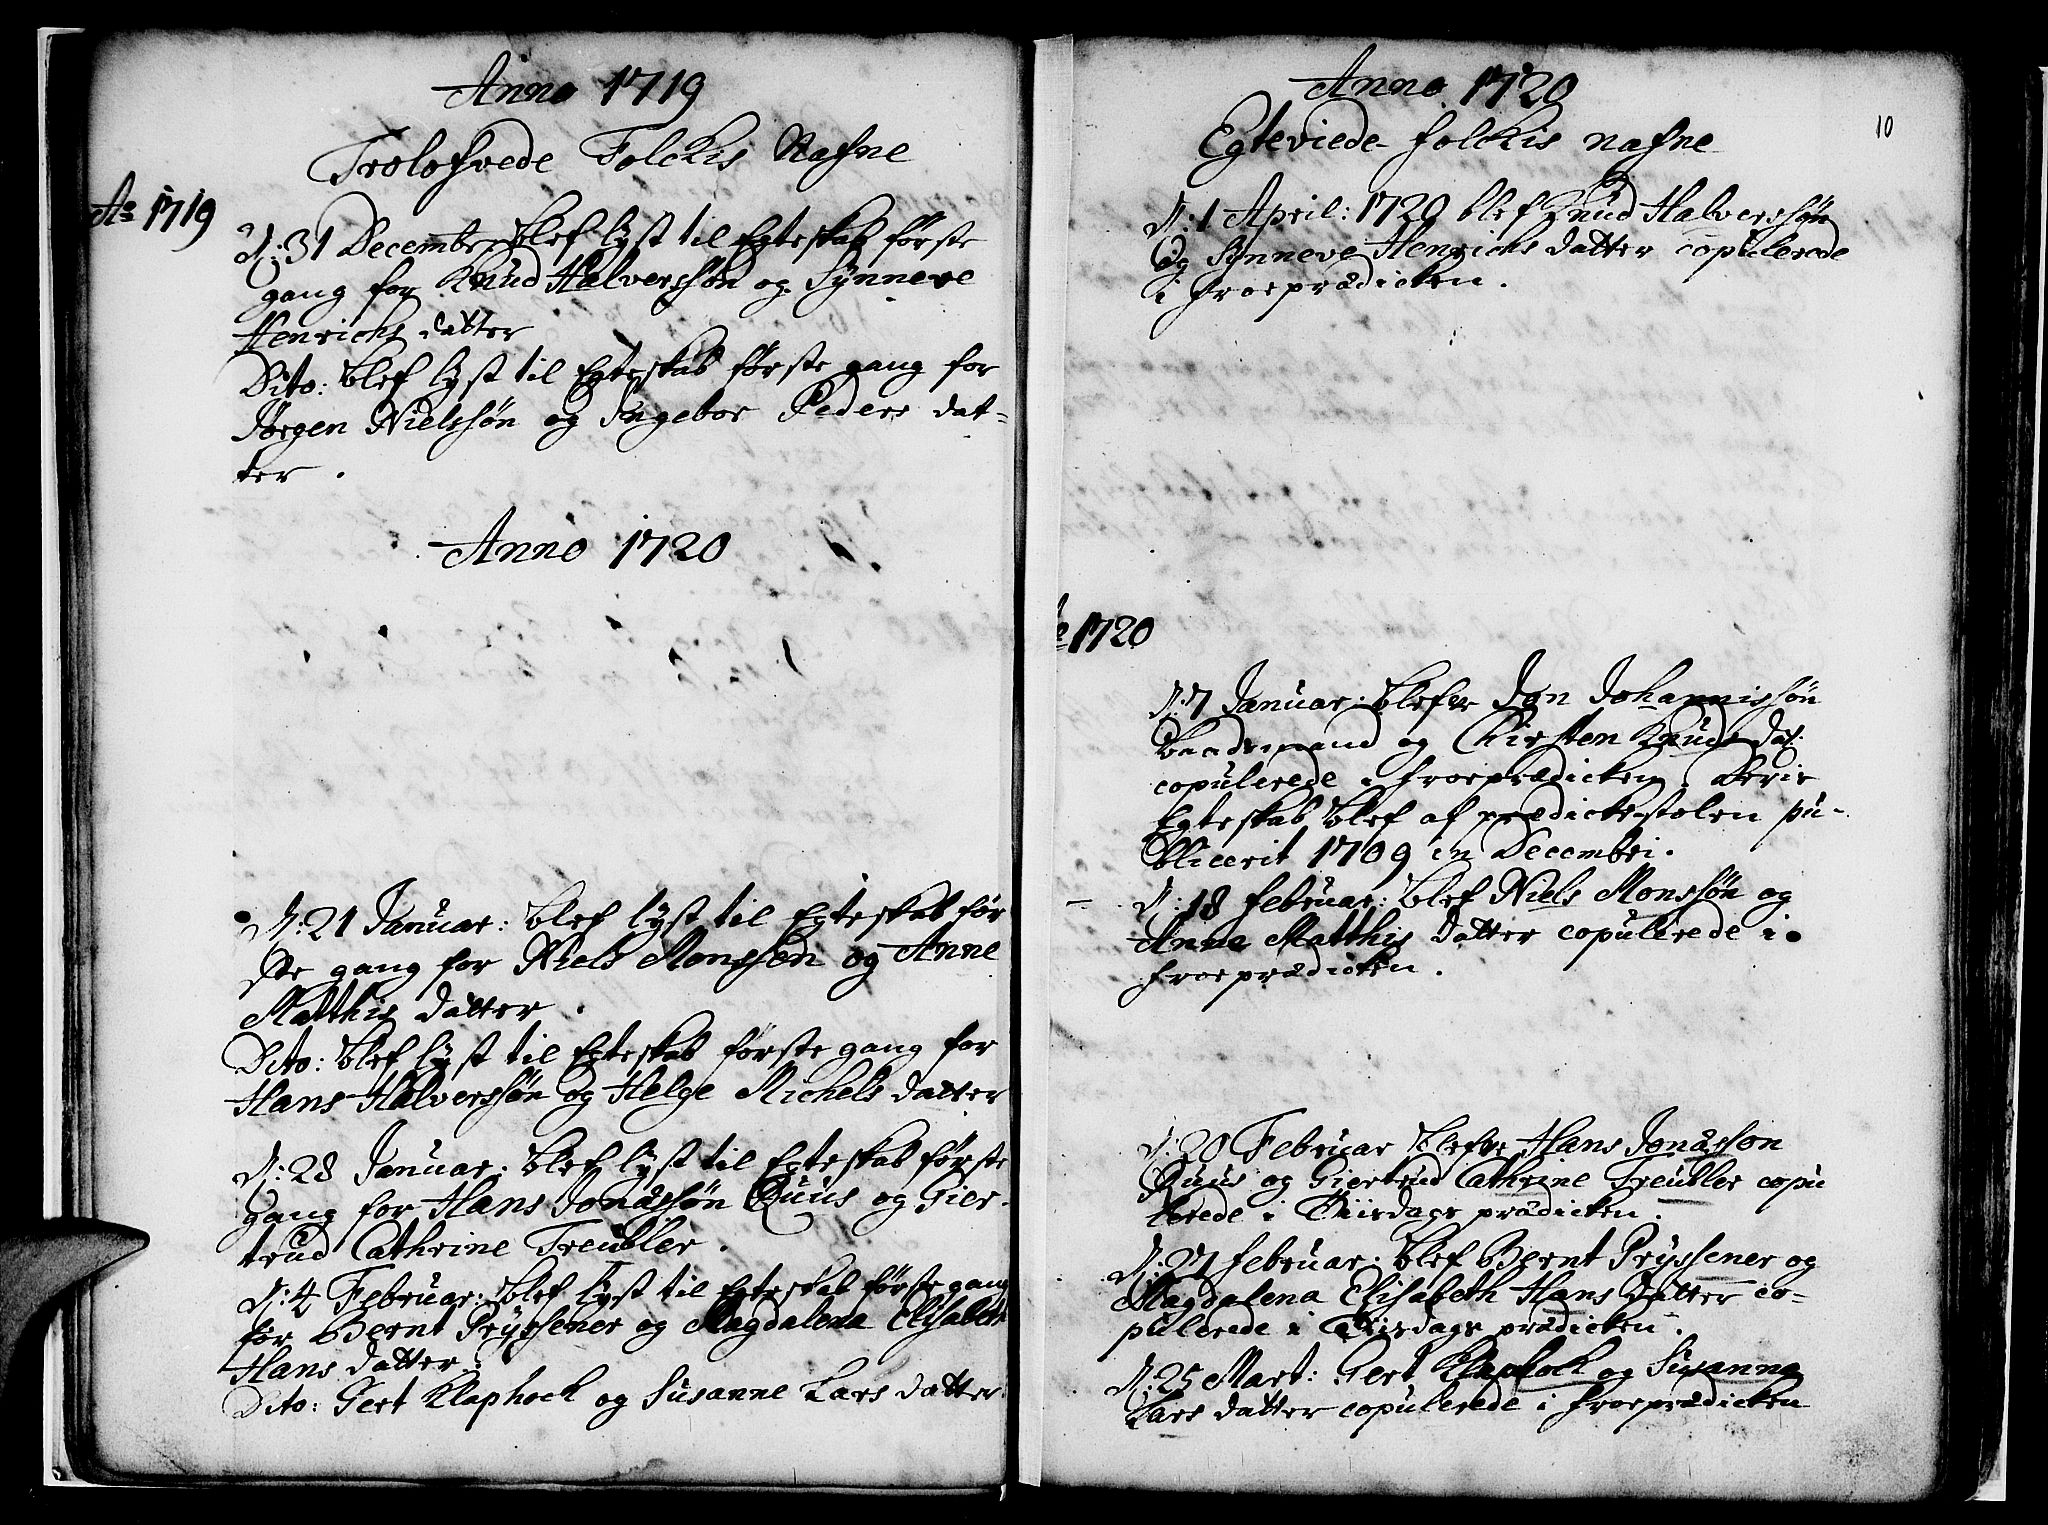 Anno 1719
Trolofvede Folckis Nafne
Ao 1719
D: 31 Decembr blef lyst til Egteskab første
gang for Knud Halverssøn og Synneve
Henrichs datter
Dito: blef lyst til Egteskab første gang for
Jørgen Nielssøn og Ingebor Peders dat-
ter.
Anno 1720
D: 21 Januar: blef lyst til Egteskab før
ste gang for Niels Monssen og Anne
Matthis datter.
Dito: blef lyst til Egteskab første gang for
Hans Halverssøn og Helge Michels datter
D: 28 Januar: blef lyst til Egteskab første
gang for Hans Jonassøn Quus og Gier-
trud Cathrine Treubler.
D: 4 Februar: blef lyst til Egteskab første gang
for Bernt Pryssener og Magdalena Elisabeth
Hans datter.
Dito: Gert Klaphock og Susanne Lars datter
Anno 1720
10
Egteviede folckis nafne
D: 1 April: 1720 blef Knud Halverssøn
og Synneve Henrichs datter copulerede
i froeprædicken.
1720
D: 7 Januar: blefve Jon Johannissøn
baadsmand og Chirsten Knuds dat:
copulerede i froeprædicken. deris
Egteskab blef af prædickestolen pu-
blicerit 1709 in Decembri.
D: 18 februar: blef Niels Monssøn og
Anne Matthis datter copulerede i
froeprædicken.
D: 20 Februar blefve Hans Jonasson
Quus og Giertrud Cathrine Treubler copu
lerede i Tiisdags prædicken.
D: 27 februar: blef Bernt Pryssener og
Magdalena Elisabeth Hans datter co-
pulerede i Tiisdags prædicken.
D: 25 Mart: Gert Klaphock og Susanna
Lars datter copulerede i froeprædicken